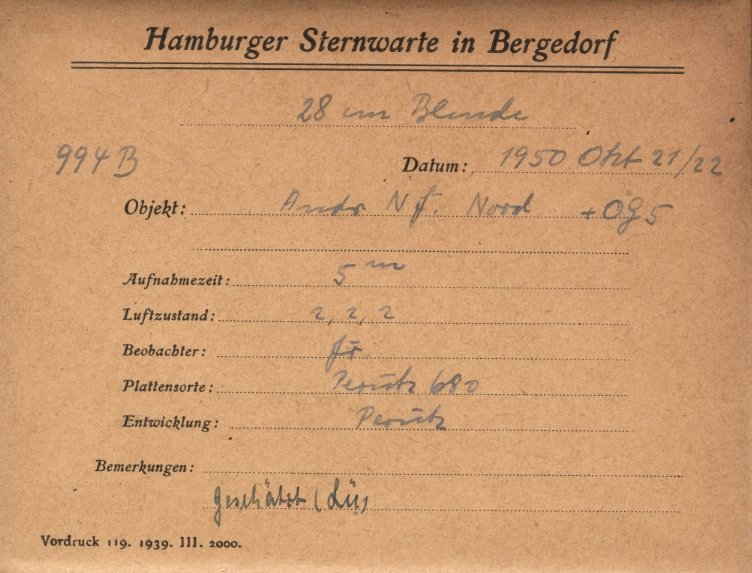 Hamburger Sternwarte in Bergedorf
28 cm Blende
994 B Datum: 1950 Okt 21/22
Objekt: Andr Nf. Nord + OG5
Aufnahmezeit: 5 m
Luftzustand: 2, 2, 2
Beobachter:
Plattensorte: Perutz 680
Entwicklung: Perutz
Bemerkungen:
geschätzt (Lü)
Vordruck 119. 1939. III. 2000.